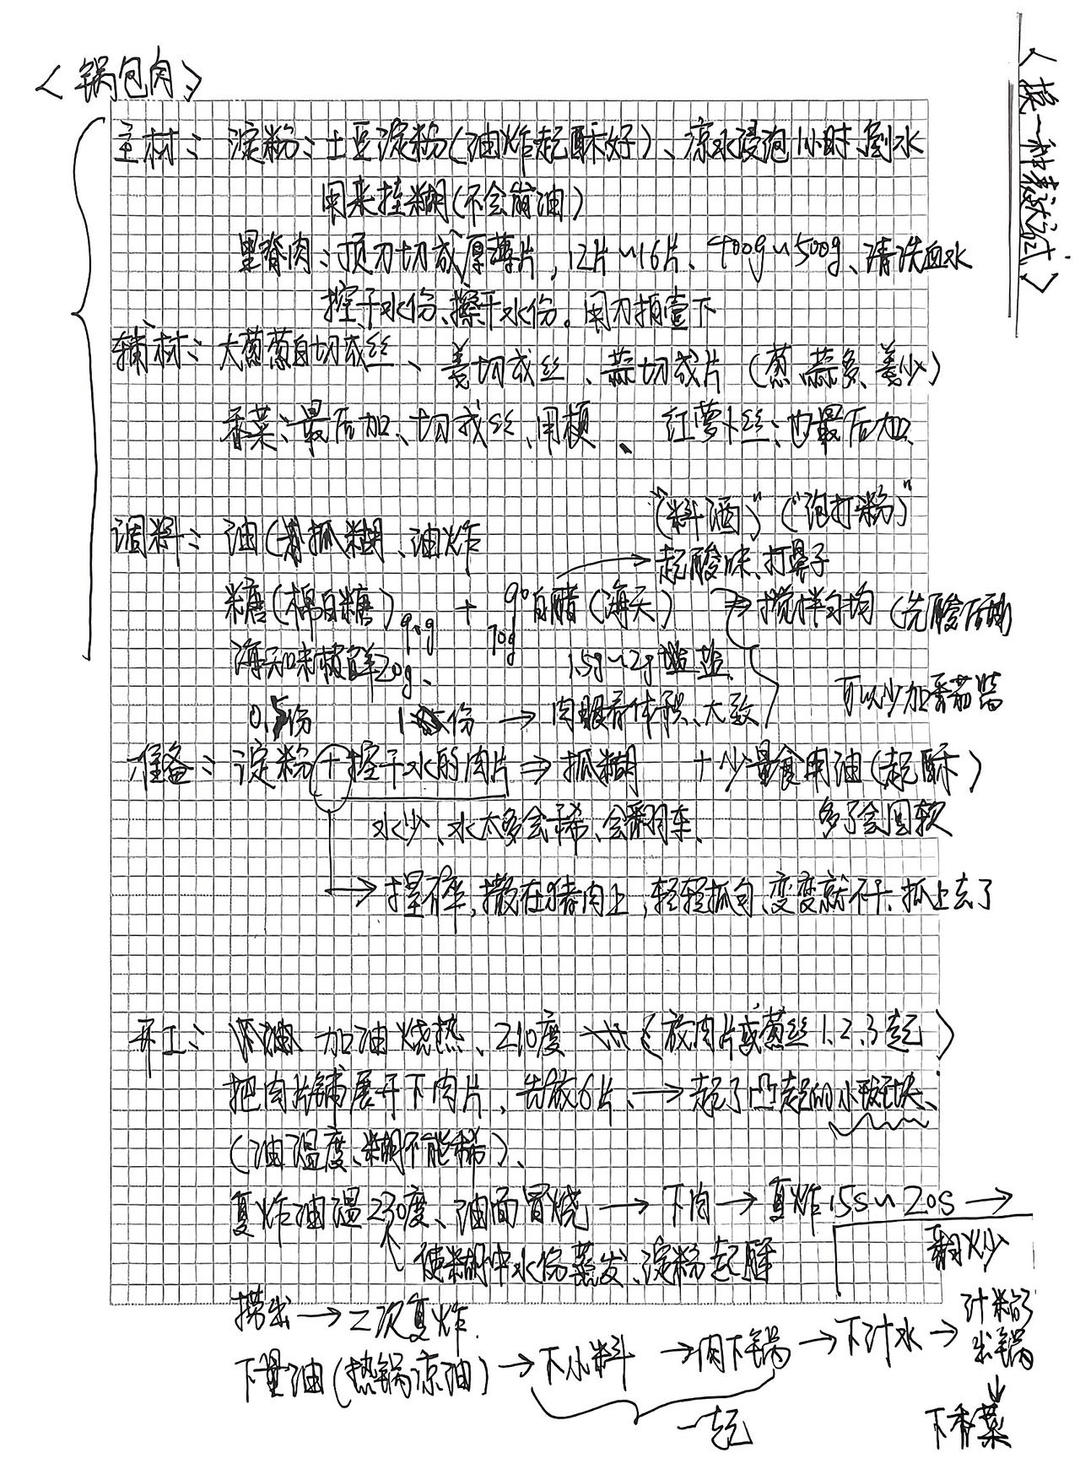 <锅包肉>
<换一种表试试>
主材：淀粉：土豆淀粉(油炸起酥好)、凉水浸泡1小时、倒水
用来挂糊(不会崩油)
里脊肉：顶刀切成厚薄片，12片~16片、400g~500g、清洗血水
控干水份、擦干水份。用刀拍壹下
辅材：大葱葱白切成丝、姜切成丝、蒜切成片 (葱、蒜多、姜少)
香菜：最后加、切成丝、用梗、 红萝卜丝：也最后加、
"(料酒)" ("泡打粉)"
调料：油(抓糊、油炸 起酸味、打鼻子
糖(棉白糖)90g + 90g白醋(海天) ⇒ 搅拌均匀 (先酸后甜)
海天味极鲜20g、 1.5g~2g 盐
可以少加番茄酱
0.5份 1份 → 肉眼看体积、大致
准备：淀粉+控干水的肉片 ⇒ 抓糊 + 少量食用油(起酥)
水少、水太多会稀、会翻车、 多了会回软
→ 撒在猪肉上，轻轻抓匀、变变就不干、抓上去了
开工： 加油烧热、210度 (放肉片或葱丝1.2.3起)
把肉片铺展开下肉片，先放6片、→ 起了凸起的小斑块、
(油温度、糊不能稀)、
复炸油温230度、油面冒烧 → 下肉 → 复炸15s~20s →
翻炒
使糊中水份蒸发、淀粉起酥
捞出 → 二次复炸.
下量油(热锅凉油) → 下小料 → 肉下锅 → 下汁水 → 汁粘了出锅
一起
下香菜